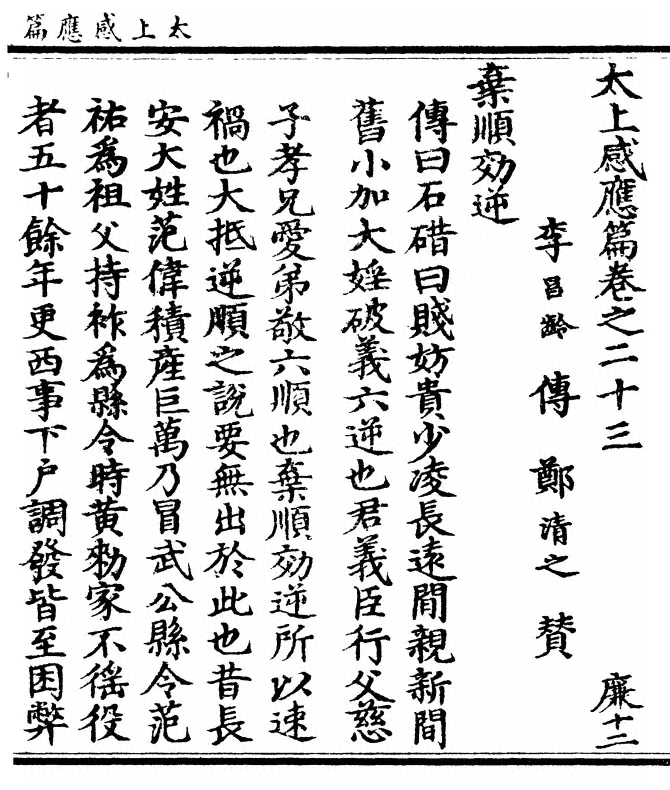 太上感應篇
太上感應篇卷之二十三
李昌齡 傳 鄭清之 贊 廉十二
棄順効逆
傳曰石碏曰賤妨貴少凌長遠間親新間
舊小加大婬破義六逆也君義臣行父慈
子孝兄愛弟敬六順也棄順効逆所以速
禍也大抵逆順之說要無出於此也昔長
安大姓范偉積產巨萬乃冒武公縣令范
祐為祖父持祚為縣令時黃勑家不徭役
者五十餘年更西事下戶調發皆至困弊